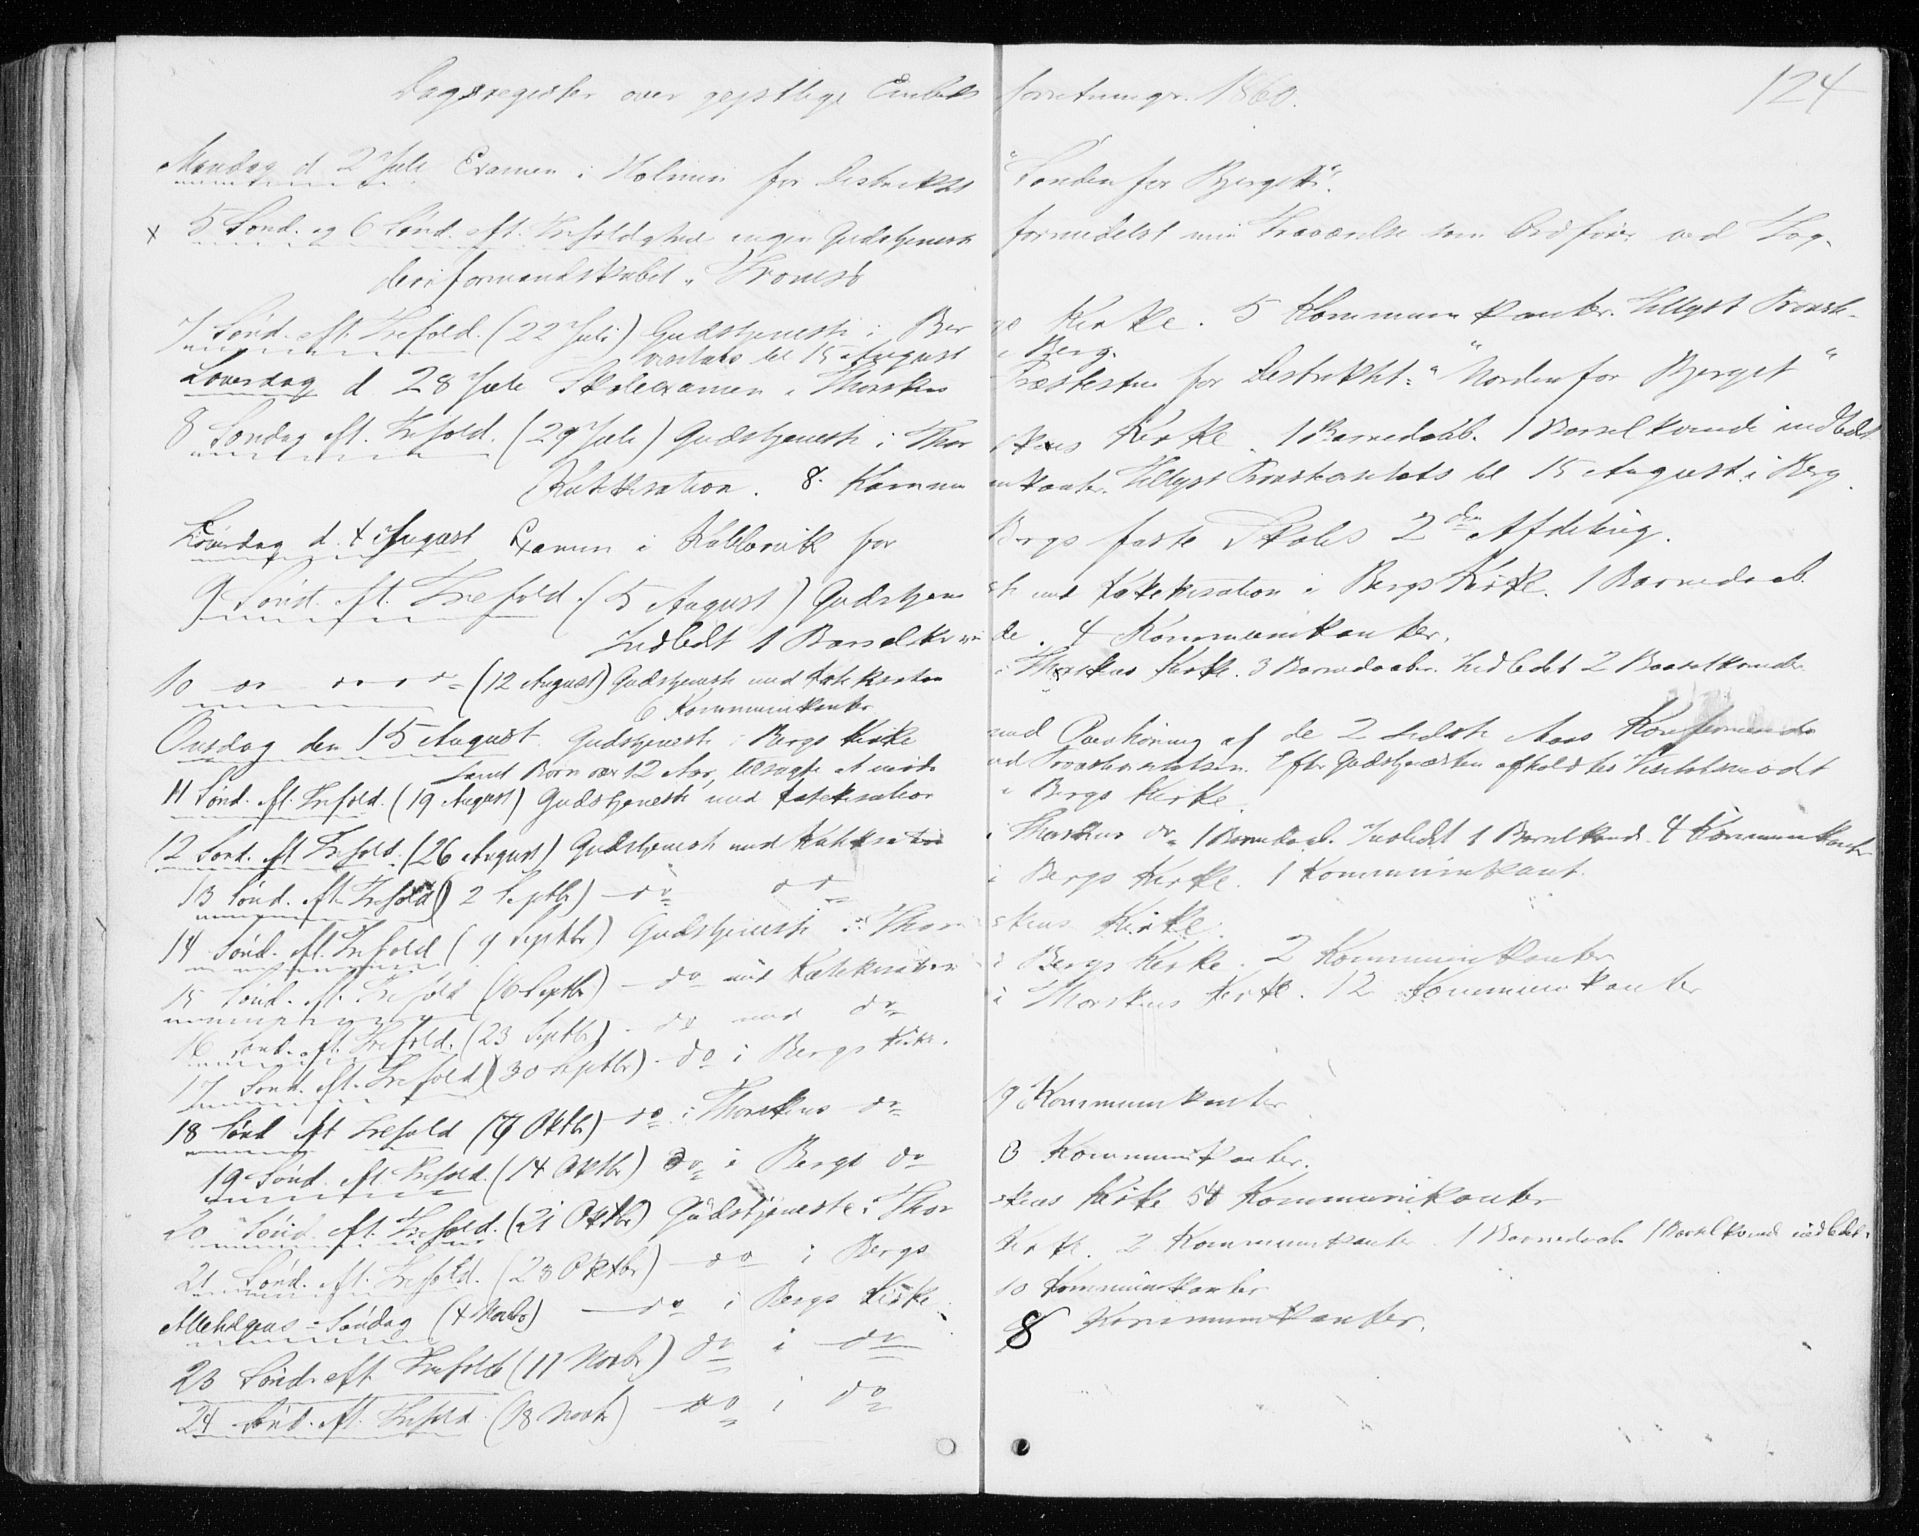 124
Dagsregister over gejstlige Embeds forretninger. 1860.
Mandag d 2 Juli Examen i Holmen for Distriktet "Søndenfor Bjerget".
x 5 Sønd. og 6 Sønd. eft. Trefoldighed ingen Gudstjeneste formedelst min Fraværelse som Ordfører ved Fog-
deriformandskabet i Tromsø
7 Sønd. eft. Trefold. (22 Juli) Gudstjeneste i Bergs Kirke. 5 Kommunikanter. Tillyst Provste-
visitats til 15 August i Berg.
Løverdag d. 28 Juli Skoleexamen i Thorskens Præstestue for Distriktet "Nordenfor Bjerget"
8 Søndag eft. Trefold. (29 Juli) Gudstjeneste i Thorskens Kirke. 1 Barnedaab. 1 Barselkvinde indledet
Katekisation. 8 Kommunikanter. Tillyst Provstevisitats til 15 August i Berg.
Løverdag d. 4 August Examen i for Bergs faste Skoles 2den Afdeling.
9 Sønd. eft. Trefold. (5 August) Gudstjeneste med Katekisation i Bergs Kirke. 1 Barnedaab.
Indledt 1 Barselkvinde. 4 Kommunikanter.
10 do do do (12 August) Gudstjeneste med Katekisation i Thorskens Kirke. 3 Barnedaab. Indledet 2 Barselkvinder
6 Kommunikanter
Onsdag den 15 August. Gudstjeneste i Bergs Kirke med Overhøring af de 2 sidste Aars Konfirmerede
samt Børn over 12 Aar, tilsagte at møde ved Provstevisitatsen. Efter Gudstjenesten afholdtes
11 Sønd. eft. Trefold. (19 August) Gudstjeneste med Katekisation i Bergs Kirke.
12 Sønd. eft Trefold. (26 August) Gudstjeneste med Katekisation i Thorskens do 1 Barnedaab. Indledt 1 Barselkvinde. 4 Kommunikanter
13 Sønd. eft. Trefold (2 Septbr) do do i Bergs Kirke. 1 Kommunikant.
14 Sønd. eft. Trefold (9 Septbr) Gudstjeneste i Thorskens Kirke.
15 Sønd. eft. Trefold (16 Septbr) do med Katekisation i Bergs Kirke. 2 Kommunikanter
16 Sønd. eft. Trefold. (23 Septbr) do med do i Thorskens Kirke. 12 Kommunikanter
17 Sønd. eft. Trefold (30 Septbr) do i Bergs Kirke.
18 Sønd eft Trefold (7 Oktbr) do i Thorskens do 19 Kommunikanter
19 Sønd. eft. Trefold. (14 Oktbr) do i Bergs do 3 Kommunikanter.
20 Sønd. eft. Trefold. (21 Oktbr) Gudstjeneste i Thorskens Kirke 54 Kommunikanter
21 Sønd. eft. Trefold. (28 Oktbr) do i Bergs Kirke. 2 Kommunikanter 1 Barnedaab 1 Barselkvinde indledet.
Allehelgens-Søndag (4 Novbr) do i Bergs Kirke 10 Kommunikanter
23 Sønd. eft. Trefold (11 Novbr) do i do 8 Kommunikanter.
24 Sønd. eft. Trefold (18 Novbr) do i do